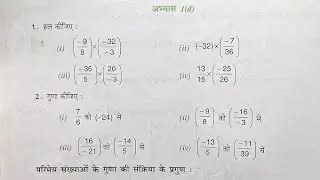 अभ्यास 1(d)
1. हल कीजिए :
(i) (-9/8) × (-32/-3) (ii) (-32) × (-7/36)
(iii) (-36/5) × (20/-3) (iv) 13/15 × (-25/26)
2. गुणा कीजिए :
(i) 7/6 को (-24) से (ii) (-9/8) को (-16/-3) से
(iii) (16/-21) को (-14/5) से (iv) (-13/5) को (-11/39) से
परिमेय संख्याओं के गुणा की संक्रिया के प्रगुण :